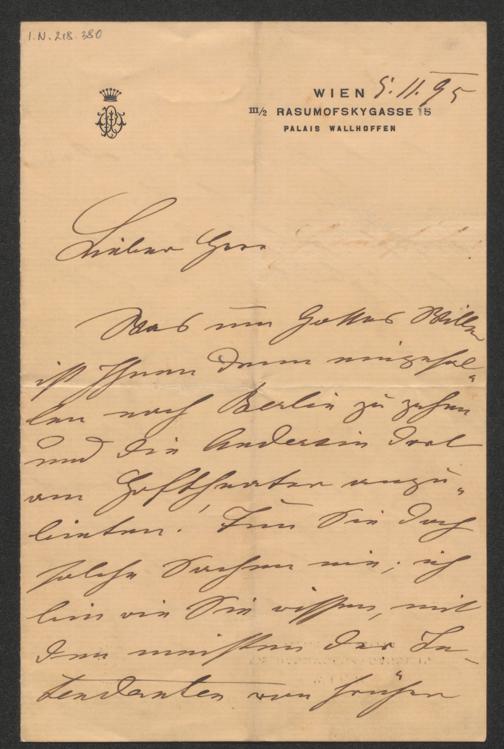 I.N. 218.380
WIEN 5.11.95
III/2 RASUMOFSKYGASSE 18
PALAIS WALLHOFFEN
Lieber Herr
Was um Gottes Willen
ist Ihnen denn eingefal„
len nach Berlin zu gehen
und die dort
am Hoftheater anzu„
bieten. Tun Sie doch
solche Sachen nie; ich
bin wie Sie wissen, mit
den meisten der In-
tendanten von früher